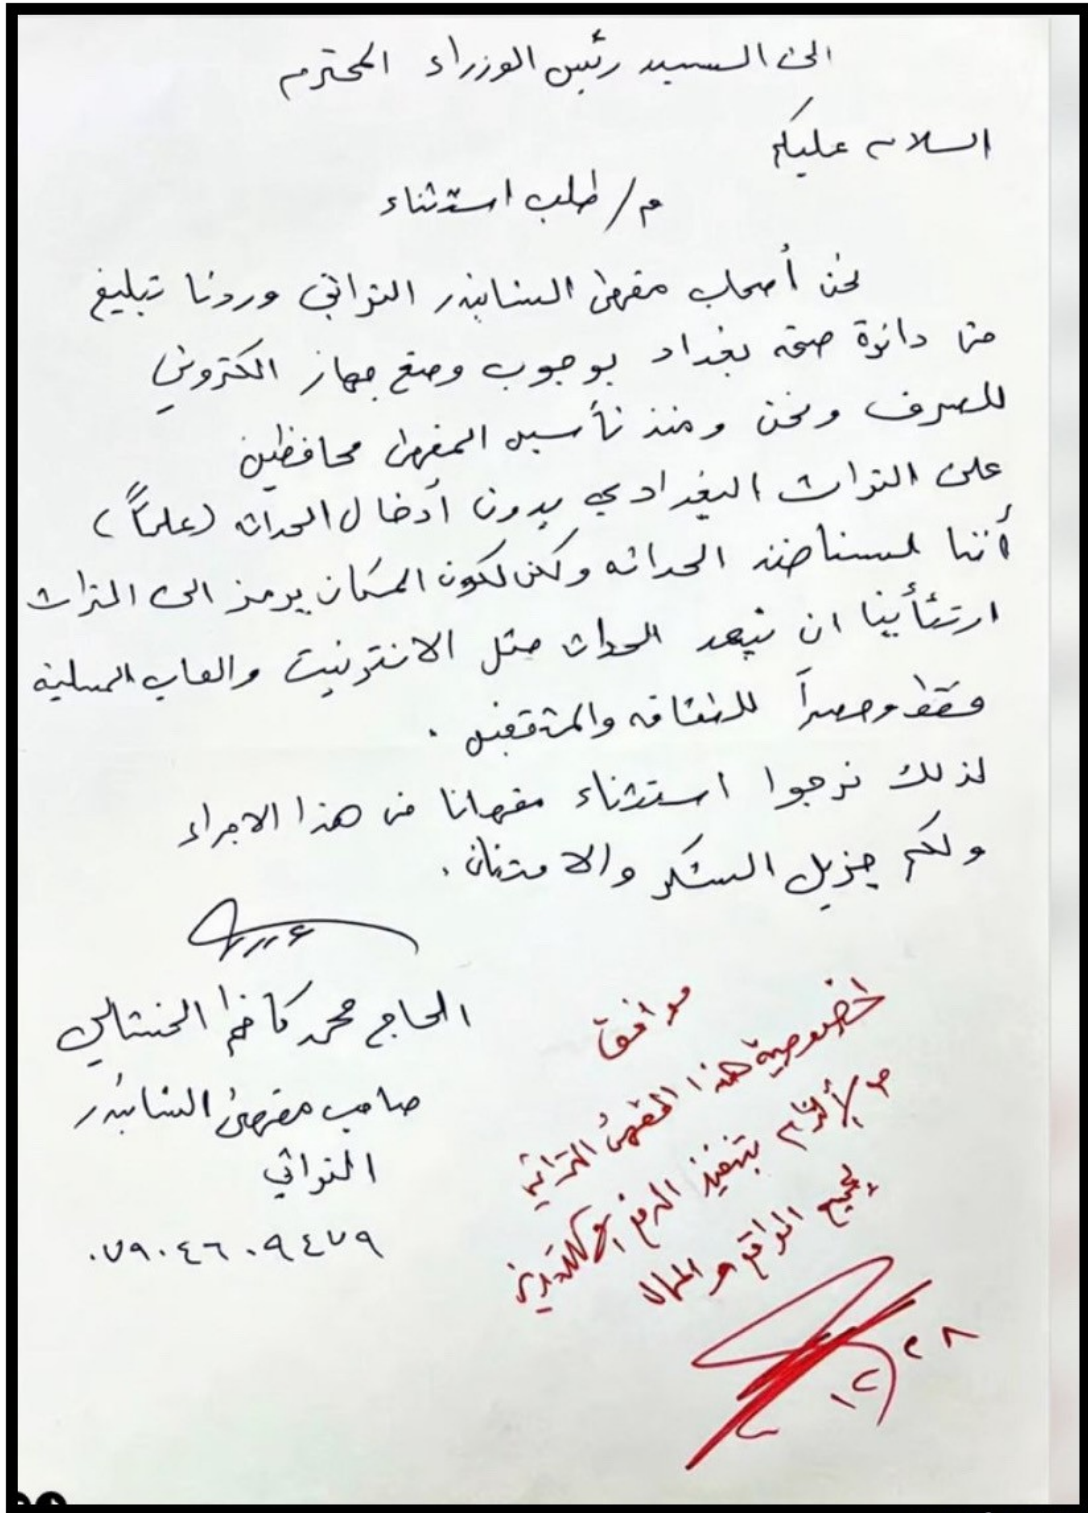 الى السيد رئيس الوزراء المحترم
السلام عليكم
م/ طلب استثناء
نحن أصحاب مقهى الشابندر التراثي وردنا تبليغ
من دائرة صحة بغداد بوجوب وضع جهاز الكتروني
للصرف ونحن ومنذ تأسيس المقهى محافظين
على التراث البغدادي بدون أدخال الحداثه (علماً)
أننا لسنا ضد الحداثه ولكن لكون المكان يرمز الى التراث
ارتئأينا ان نبعد الحداث مثل الانترنيت والعاب المسليه
فقط وحصراً للثقافه والمثقفين .
لذلك نرجوا استثناء مقهانا من هذا الاجراء
ولكم جزيل الشكر والامتنان .
الحاج محمد كاظم الخشالي
صاحب مقهى الشابندر
التراثي
٠٧٩٠٤٦٠٩٤٧٩
موافق
لخصوصية هذا المقهى التراثي
مع ألتزام بتنفيذ الدفع الالكتروني
لجميع المواقع والمحال
١٢/٢٨